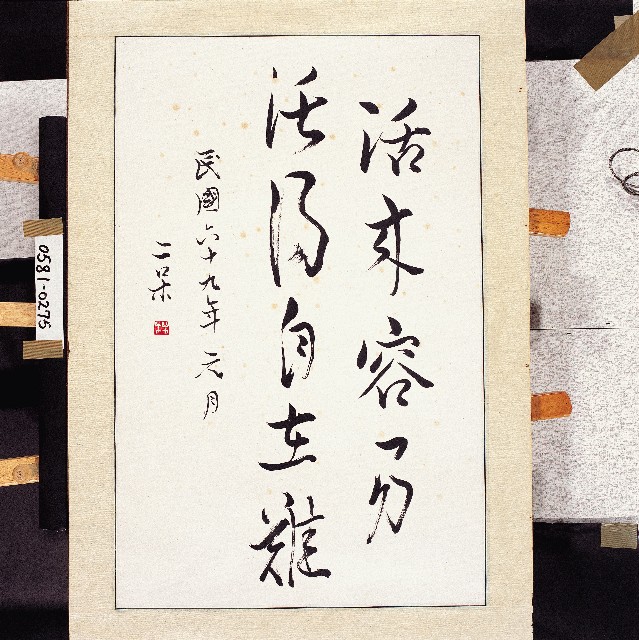 活來容易
活得自在難
民國六十九年元月
二呆
0581-0275